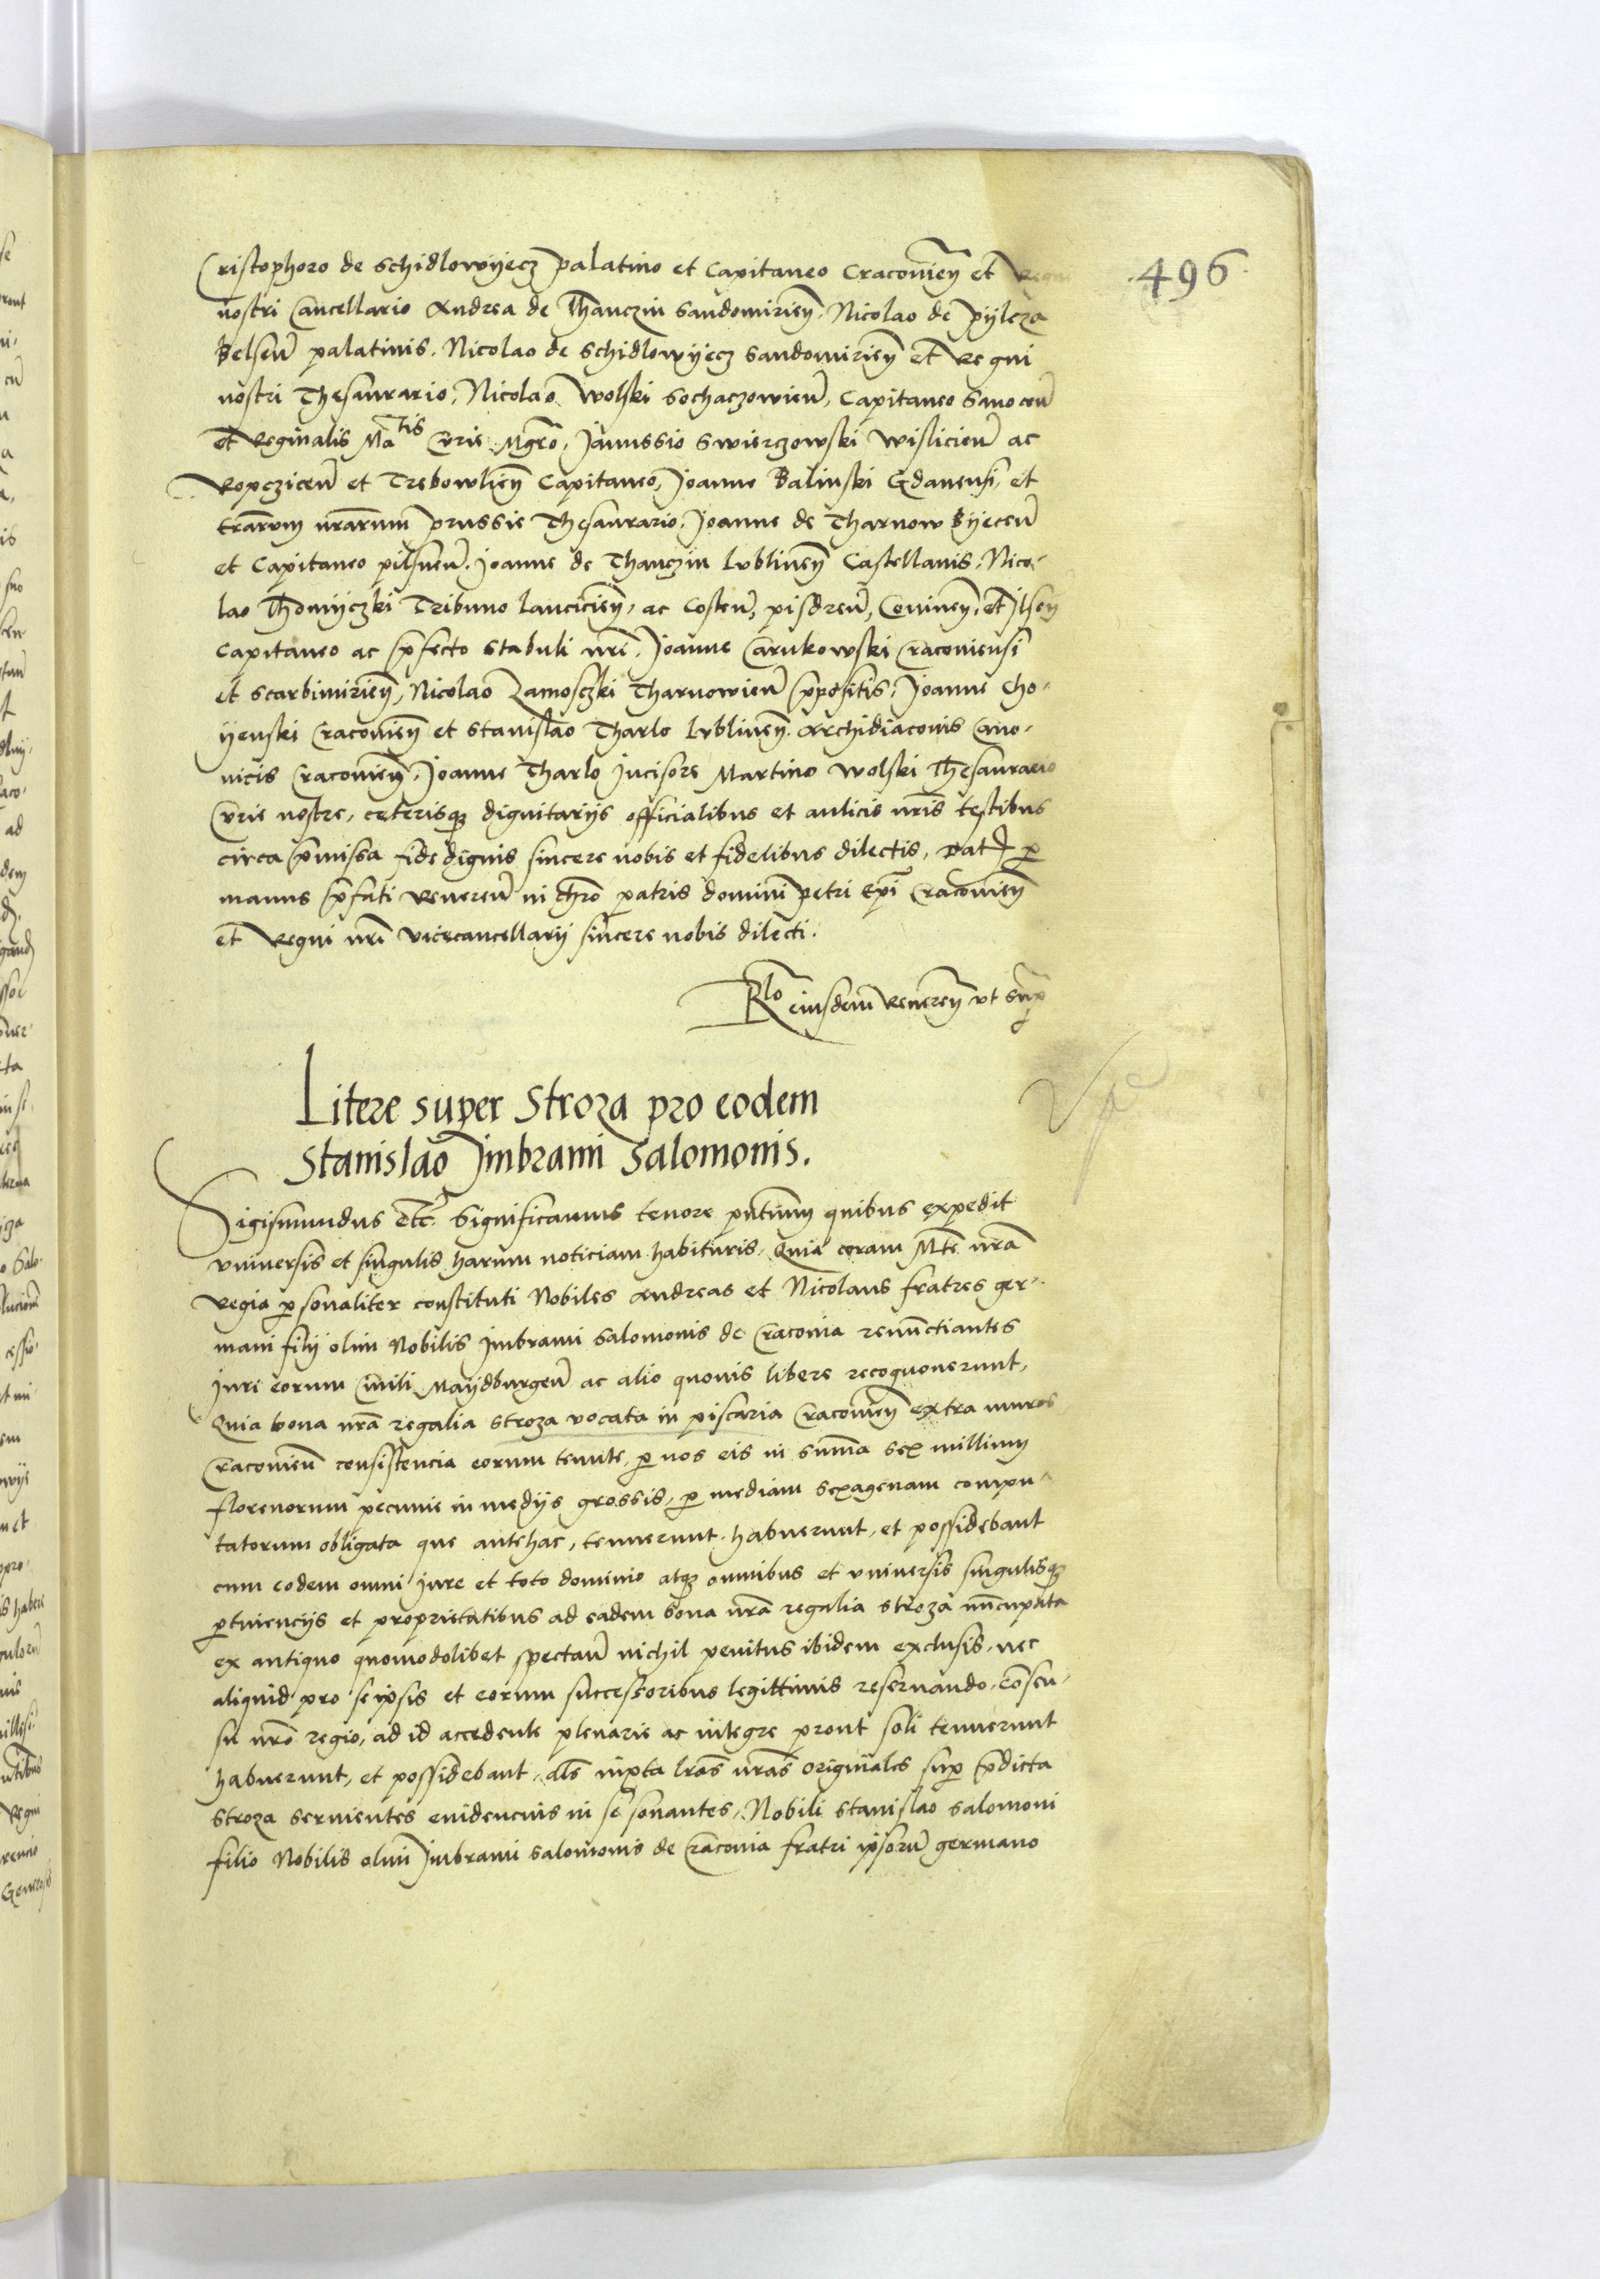 496
Cristophoro de Schidlowyecz palatino et Capitaneo Cracovień et Regni
nostri Cancellario Andrea de Thanczin Sandomirień, Nicolao de Pylcza
Belseń palatinis. Nicolao de Schidlowyecz Sandomirień et Regni
nostri Thesaurario, Nicolao Wolski Sochaczowień, Capitaneo Sanoceń
et Reginalis Matis Curie Mgro, Janussio Swierczowski Wislicień ac
Ropcziceń et Trebowlień Capitaneo, Joanne Balinski Gdanensi, et
trarum nrarum Prussie Thesaurario, Joanne de Tharnow Byeceń
et Capitaneo pilsneń. Joanne de Thanczin Lublineń Castellanis. Nico-
lao Thomyczki Tribuno lancicień, ac Costeń, pisdreń, Covineń, et Ilseń
Capitaneo ac pfecto stabuli nri. Joanne Carnkowski Cracoviensi
et Scarbimirień, Nicolao Zamosczki Tharnowień ppositis, Joanne Cho-
yenski Cracovień et Stanislao Tharlo Lublineń Archidiaconis Cano-
nicis Cracovień, Joanne Tharlo Incisore Martino Wolski Thesaurario
Curie nostre, ceterisq dignitariis officialibus et aulicis nris testibus
circa pmissa fide dignis sincere nobis et fidelibus dilectis. Dat p
manus pfatiРевereń in chro patris domini petri Epi Cracovień
et Regni nri vicecancellarii sincere nobis dilecti.
Rlo eiusdem Revereń ut supra
Litere super Stroza pro eodem
Stanislao Imbrami Salomonis.
Sigismundus Etc. Significamus tenore pntium quibus expedit
universis et singulis harum noticiam habituris. Quia coram Mte nra
Regia psonaliter constituti Nobiles Andreas et Nicolaus fratres ger-
mani filii olim Nobilis Imbrami Salomonis de Cracovia renunctiantes
Iuri eorum Civili Maydburgeń ac alio quovis libere recognoverunt,
Quia bona nra regalia Stroza vocata in piscaria Cracovień extra muros
Cracovień consistencia eorum tenute, p nos eis in summa sex millium
florenorum pecunie in mediis grossis, p mediam sexagenam compu-
tatorum obligata que antehac, tenuerunt habuerunt, et possidebant
cum eodem omni iure et toto dominio atq omnibus et universis singulisq
ptinenciis et proprietatibus ad eadem bona nra regalia stroza nuncupata
ex antiquo quomodolibet spectań nichil penitus ibidem exclusis, nec
aliquid pro se ipsis et eorum successoribus legittimis reservando, cosen-
su nro regio, ad id accedente plenarie ac integre prout soli tenuerunt
habuerunt, et possidebant, als iuxta lras nras originales sup pdicta
stroza servientes evidencius in se sonantes, Nobili Stanislao Salomoni
filio Nobilis olim Imbrami Salomonis de Cracovia fratri ipsorum germano